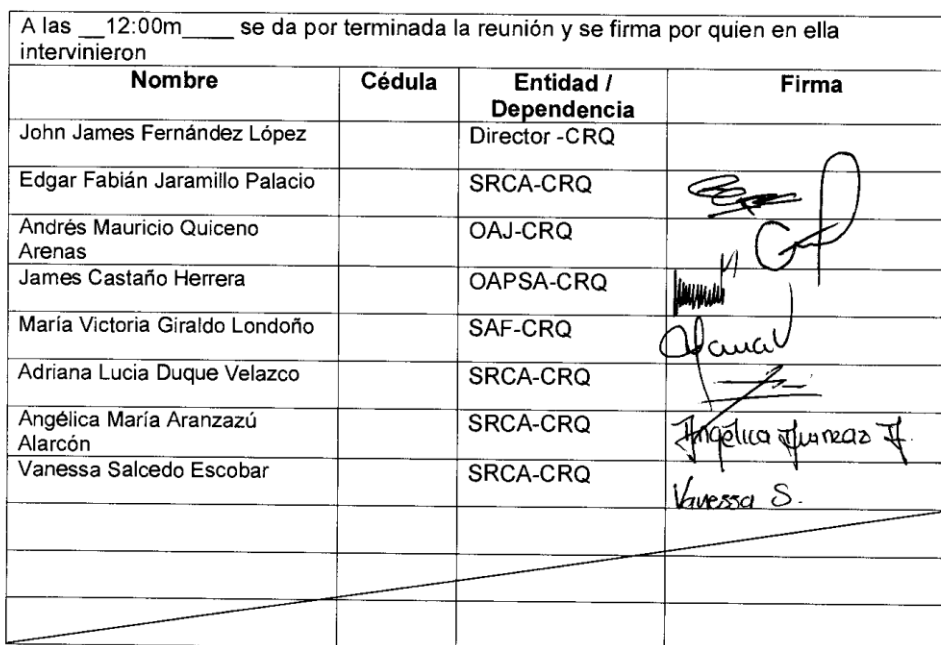 A las __12:00m____ se da por terminada la reunión y se firma por quien en ella
intervinieron
Nombre Cédula Entidad / Dependencia Firma
John James Fernández López Director -CRQ
Edgar Fabián Jaramillo Palacio SRCA-CRQ
Andrés Mauricio Quiceno Arenas OAJ-CRQ
James Castaño Herrera OAPSA-CRQ
María Victoria Giraldo Londoño SAF-CRQ
Adriana Lucia Duque Velazco SRCA-CRQ
Angélica María Aranzazú Alarcón SRCA-CRQ Angélica
Vanessa Salcedo Escobar SRCA-CRQ Vanessa S.